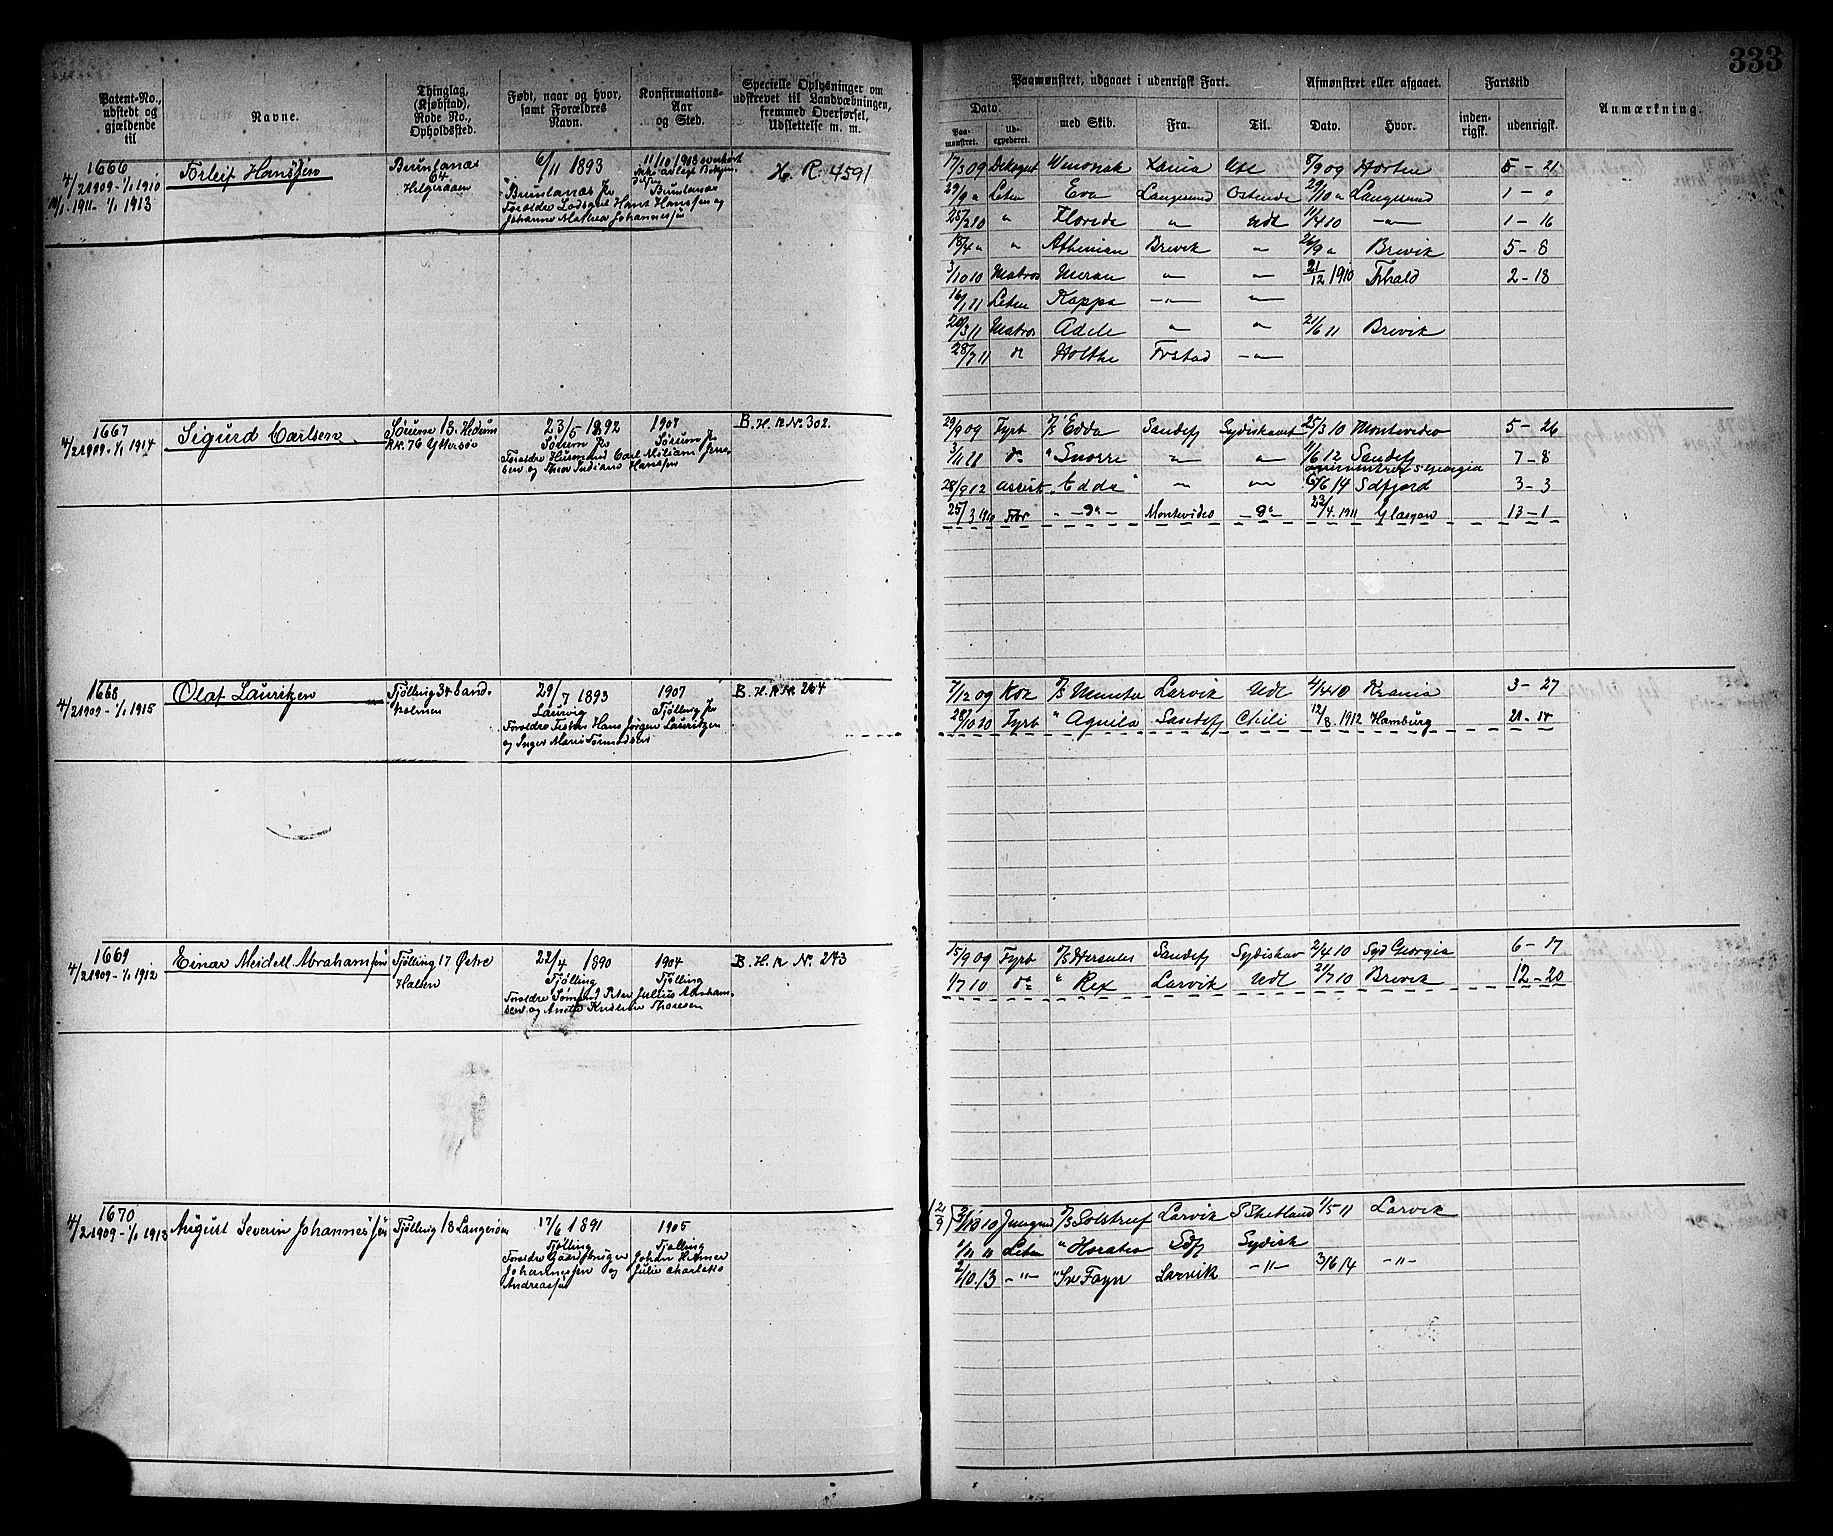 333
Patent-No., udstedt og gjældende til
Navne.
Thinglag, (Kjøbstad), Rode No., Opholdssted.
Født, naar og hvor, samt Forældres Navn.
Konfirmations-Aar og Sted.
Specielle Oplysninger om udstrevet til Landværbningen, fremmed Overførsel, Udslettelse m. m.
Paamønstret, udgaaet i udenrigsk Fart.
Dato.
Paamønstret.
Udexpederet.
med Skib.
Fra.
Til.
Afmønstret eller afgaaet.
Dato.
Hvor.
Fartstid
indenrigsk.
udenrigsk.
Anmærkning.
1666
4/2 1909 - 1/1 1910
1911 - 1/1 1913
Torleif Hanssen
Brunlanæs
64
Helgeraaen
6/11 1893
Brunlanæs Pr
Forældre Lodsaut Hans Hanssen og
Johanne Mathea Johannessen
Brunlanæs
H. R. 4591
17/3 09 Winonah Ude 8/9 09 Horten 5 - 21
29/9 " Letm Eva Langesund Ostende 29/10 " Langesund 1 - 0
25/2 10 " Floride " Udl 11/4 10 - " - 1 - 16
18/4 " " Athenian Brevik " 26/9 " Brevik 5 - 8
3/10 10 Matros Meran " " 21/12 1910 Frhald 2 - 18
16/1 11 Letm Kappa - " - - " -
20/3 11 Matros Adele " " 21/6 11 Brevik
28/7 11 do Holthe Frstad - " -
1667
4/2 1909 - 1/1 1914
Sigurd Carlsen
Sørum 13. Hedrum
Rk. 76 Yttersøe
23/5 1892
Sørum Pr
Forældre Husmand Carl Miliam
og Thea Indiane Hanssen
1907
Sørum Pr
B. H. R Nr. 302.
29/9 09 Fyrb D/S Edda Sandefj Sydishavet 25/3 10 Montevideo 5 - 26
3/11 11 do " Snorre " " 11/6 12 Sandefj 7 - 8
S. Georgia
28/9 12 Assist. " Edda " " " 6/6 14 Sdfjord 3 - 3
25/3 1910 Fyrb " - do - Montevideo - do - 23/4. 1911 Glasgow 13 - 1
1668
4/2 1909 - 1/1 1915
Olaf Lauritzen
Tjølling 34 Sandholmen
29/7 1893
Laurvig
Forældre Fisker Hans Jørgen Lauritzen
og Inger Marie Tormodsen
1907
Tjølling Pr
B. H. R Nr. 264
7/12 09 Kok D/S Munita Larvik Udl 4/4 10 Krania 3 - 27
28/10 10 Fyrb " Aquila Sandefj Chili 12/8. 1912 Hamburg 21 - 14
1669
4/2 1909 - 1/1 1912
Einar Meidell Abrahamsen
Tjølling 17 Østre
Halsen
22/4 1890
Tjølling
Forældre Sømand Peter Julius Abrahamsen
og Anette Kristine Thoresen
1904
Tjølling
B. H. R Nr. 273
15/9 09 Fyrb D/S Hercules Sandefj Sydishav 2/4 10 Syd Georgia 6 - 17
1/7 10 do " Rex Larvik Udl 21/7 10 Brevik 12 - 20
1670
4/2 1909 - 1/1 1913
August Severin Johannessen
Tjølling 18 Langesøen
17/6 1891
Tjølling
Forældre Gaardbruger Johan Hilmer
Johannessen og Julie Charlotte
Andreassen
1905
Tjølling
10 Jungmd D/S Solstreif Larvik S Shetland 1/5 11 Larvik
1/11 11 Letm " Horatio Sdfj Sydish
2/10. 13 - " - " Sv Foyn Larvik - " - 3/6 14 - " -